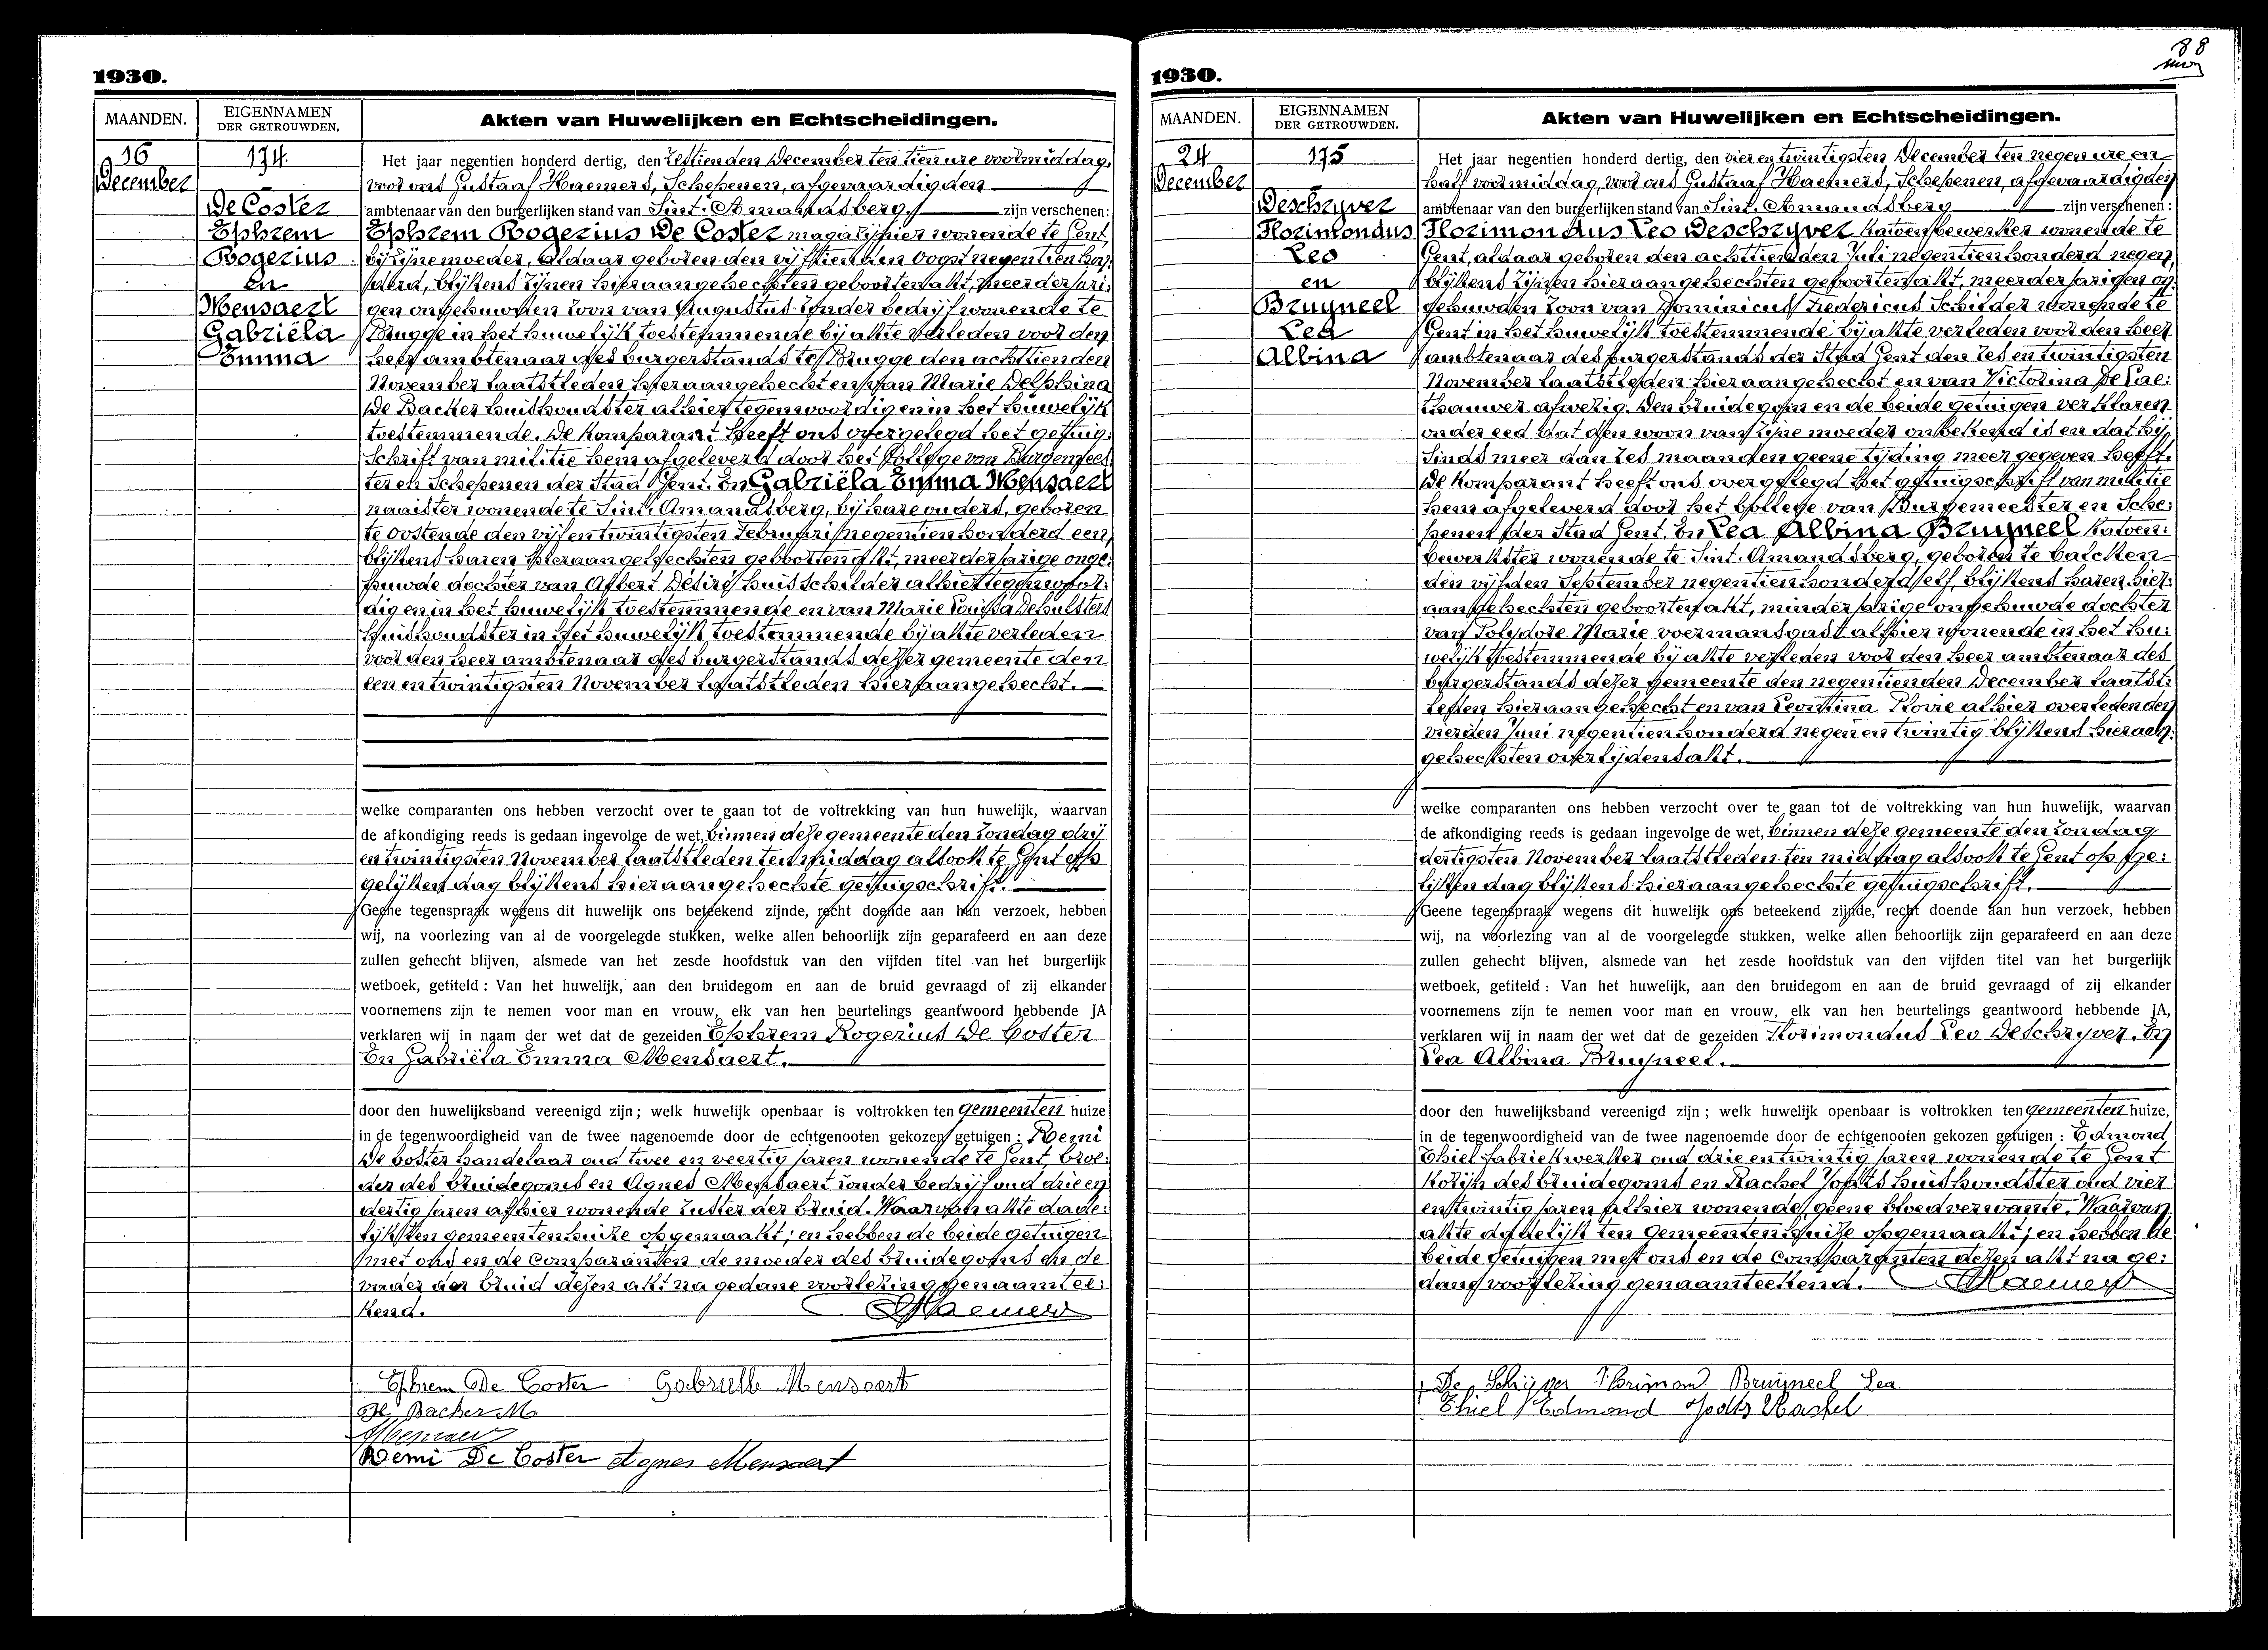 1930.
MAANDEN.
EIGENNAMEN
DER GETROUWDEN.
Akten van Huwelijken en Echtscheidingen.
16
December
174.
De Coster
Ephrem
Rogerius
en
Mensaert
Gabriëla
Emma
Het jaar negentien honderd dertig, den zestienden December ten tien ure voormiddag,
voor ons Gustaaf Haemers, Schepenen, afgevaardigden
ambtenaar van den burgerlijken stand van Sint-Amandsberg, zijn verschenen:
Ephrem Rogerius De Coster magazijnier wonende te Gent,
bij zijne moeder, aldaar geboren den vijftienden Oogst negentien hon:
derd, blijkens zijnen hieraangehechten geboortenakt, meerderjari:
gen ongehuwden zoon van Augustus zonder bedrijf wonende te
Brugge in het huwelijk toestemmende bij akte verleden voor den
heer ambtenaar des burgerstands te Brugge den achttienden
November laatstleden hieraangehecht en van Marie Delphina
De Backer huishoudster alhier tegenwoordig en in het huwelijk
toestemmende. De komparant heeft ons overgelegd het getuig:
schrift van militie hem afgeleverd door het College van Burgemees:
ter en Schepenen der Stad Gent. En Gabriëla Emma Mensaert
naaister wonende te Sint-Amandsberg, bij hare ouders, geboren
te Oostende den vijfentwintigsten Februari negentienhonderd een,
blijkens haren hieraangehechten geboortenakt, meerderjarige onge:
huwde dochter van Albert Désiré huisschilder alhier tegenwoor:
dig en in het huwelijk toestemmende en van Marie Louisa Dehulsters
huishoudster in het huwelijk toestemmende bij akte verleden
voor den heer ambtenaar des burgerstands dezer gemeente den
een en twintigsten November laatstleden hieraangehecht.
welke comparanten ons hebben verzocht over te gaan tot de voltrekking van hun huwelijk, waarvan
de afkondiging reeds is gedaan ingevolge de wet, binnen deze gemeente den zondag drij
en twintigsten November laatstleden ten middag alsook te Gent op
gelijken dag blijkens hieraangehechte getuigschrift.
Geene tegenspraak wegens dit huwelijk ons beteekend zijnde, recht doende aan hun verzoek, hebben
wij, na voorlezing van al de voorgelegde stukken, welke allen behoorlijk zijn geparafeerd en aan deze
zullen gehecht blijven, alsmede van het zesde hoofdstuk van den vijfden titel van het burgerlijk
wetboek, getiteld : Van het huwelijk, aan den bruidegom en aan de bruid gevraagd of zij elkander
voornemens zijn te nemen voor man en vrouw, elk van hen beurtelings geantwoord hebbende JA
verklaren wij in naam der wet dat de gezeiden Ephrem Rogerius De Coster
En Gabriëla Emma Mensaert.
door den huwelijksband vereenigd zijn ; welk huwelijk openbaar is voltrokken ten gemeenten huize
in de tegenwoordigheid van de twee nagenoemde door de echtgenooten gekozen getuigen : Remi
De Coster handelaar oud twee en veertig jaren wonende te Gent, broe:
der des bruidegoms en Agnes Mensaert zonder bedrijf oud drie en
dertig jaren alhier wonende zuster der bruid. Waarvan akte dade:
lijk ten gemeentenhuize opgemaakt; en hebben de beide getuigen
met ons en de comparanten de moeder des bruidegoms en de
vader der bruid dezen akt na gedane voorlezing genaamtee:
kend. GHaemers
Ephrem De Coster Gabrielle Mensaert
De Backer M.
Mensaert
Remi De Coster Agnes Mensaert
88
1930.
MAANDEN.
EIGENNAMEN
DER GETROUWDEN.
Akten van Huwelijken en Echtscheidingen.
24
December
175
Deschryver
Florimondus
Leo
en
Bruyneel
Lea
Albina
Het jaar negentien honderd dertig, den vier en twintigsten December ten negen ure en
half voormiddag, voor ons Gustaaf Haemers, Schepenen, afgevaardigden
ambtenaar van den burgerlijken stand van Sint-Amandsberg zijn verschenen :
Florimondus Leo Deschryver katoenbewerker wonende te
Gent, aldaar geboren den achttienden Juli negentienhonderd negen,
blijkens zijnen hieraangehechten geboortenakt, meerderjarigen on:
gehuwden zoon van Dominicus Fredericus schilder wonende te
Gent in het huwelijk toestemmende bij akte verleden voor den heer
ambtenaar des burgerstands der Stad Gent den zes en twintigsten
November laatstleden hieraangehecht en van Victorina De Cae:
thauwer afwezig. Den bruidegom en de beide getuigen verklaren
onder eed dat den woon van zijne moeder onbekend is en dat zij,
sinds meer dan zes maanden geene tijding meer gegeven heeft.
De komparant heeft ons overgelegd het getuigschrift van militie
hem afgeleverd door het College van Burgemeester en Sche:
penen der Stad Gent. En Lea Albina Bruyneel katoen:
bewerkster wonende te Sint-Amandsberg, geboren te Calcken
den vijfden September negentienhonderd elf, blijkens haren hier:
aangehechten geboortenakt, minderjarige ongehuwde dochter
van Polydore Marie voermansgast alhier wonende in het hu:
welijk toestemmende bij akte verleden voor den heer ambtenaar des
burgerstands dezer gemeente den negentienden December laatst:
leden hieraangehecht en van Leontina Plovie alhier overleden den
vierden Juni negentienhonderd negen en twintig blijkens hieraan:
gehechten overlijdensakt.
welke comparanten ons hebben verzocht over te gaan tot de voltrekking van hun huwelijk, waarvan
de afkondiging reeds is gedaan ingevolge de wet, binnen deze gemeente den zondag
dertigsten November laatstleden ten middag alsook te Gent op ge:
lijken dag blijkens hieraangehechte getuigschrift.
Geene tegenspraak wegens dit huwelijk ons beteekend zijnde, recht doende aan hun verzoek, hebben
wij, na voorlezing van al de voorgelegde stukken, welke allen behoorlijk zijn geparafeerd en aan deze
zullen gehecht blijven, alsmede van het zesde hoofdstuk van den vijfden titel van het burgerlijk
wetboek, getiteld : Van het huwelijk, aan den bruidegom en aan de bruid gevraagd of zij elkander
voornemens zijn te nemen voor man en vrouw, elk van hen beurtelings geantwoord hebbende JA,
verklaren wij in naam der wet dat de gezeiden Florimondus Leo Deschryver. En
Lea Albina Bruyneel.
door den huwelijksband vereenigd zijn ; welk huwelijk openbaar is voltrokken ten gemeenten huize,
in de tegenwoordigheid van de twee nagenoemde door de echtgenooten gekozen getuigen : Edmond
Thiel fabriekwerker oud drie en twintig jaren wonende te Gent
kozijn des bruidegoms en Rachel Joots huishoudster oud vier
en twintig jaren alhier wonende, geene bloedverwante. Waarvan
akte dadelijk ten gemeentenhuize opgemaakt; en hebben de
beide getuigen met ons en de comparanten dezen akt na ge:
dane voorlezing genaamteekend. GHaemers
De Schrijver Florimond Bruijneel Lea
Thiel Edmond Joots Rachel